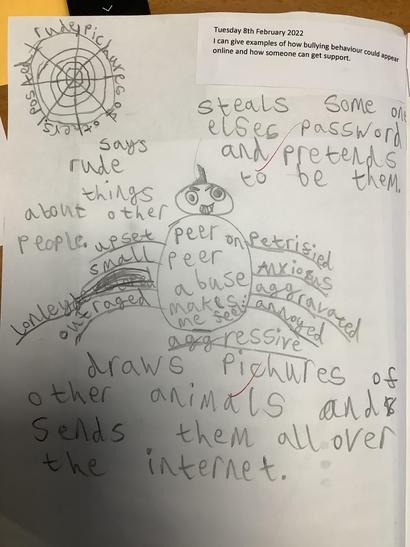 Tuesday 8th February 2022
I can give examples of how bullying behaviour could appear
online and how someone can get support.
posted rude pichures of others
steals some one
elses password
and pretends
to be them.
says
rude
things
about other
people.
upset
small
lonley
outraged
peer on
peer
abuse
makes
me feel:
Petrisied
Anxious
aggravated
annoyed
aggressive
draws pichures of
other animals and
sends them all over
the internet.